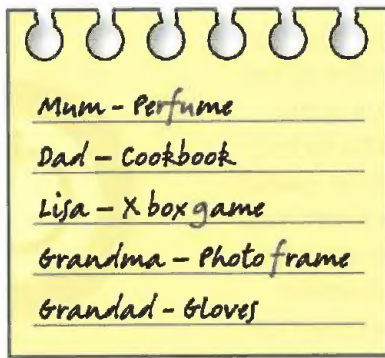 Mum – Perfume
Dad – Cookbook
Lisa – X box game
Grandma – Photo frame
Grandad – Gloves